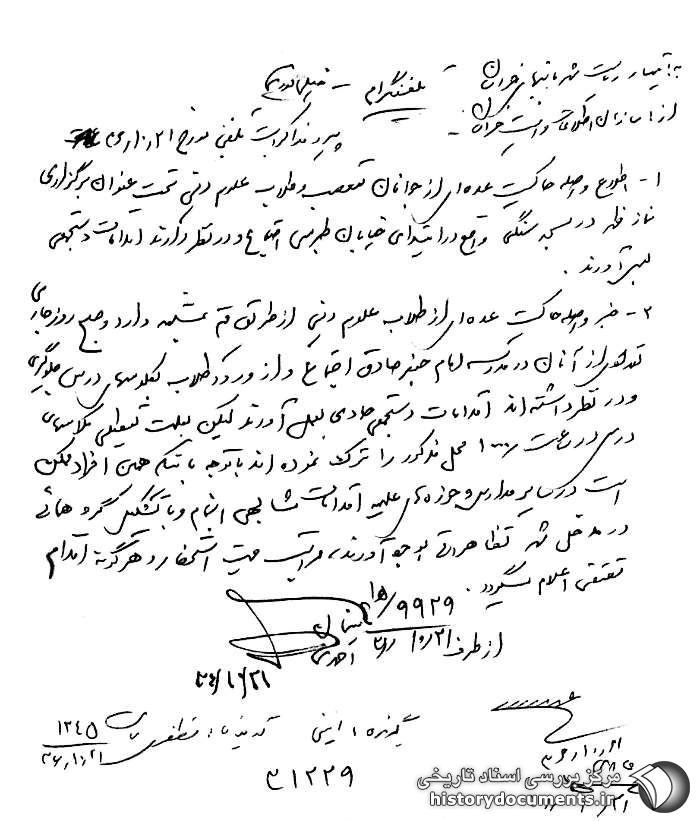 به: تیمسار ریاست شهربانیهای خراسان تلفنگرام - خیلی فوری
از: سازمان اطلاعات و امنیت خراسان - پیرو مذاکرات تلفنی مورخ
۱- اطلاع واصله حاکیست عده‌ای از جوانان متعصب و طلاب علوم دینی تحت عنوان برگزاری
نماز ظهر در مسجد سنگی واقع در ابتدای خیابان طبرسی اجتماع و در نظر دارند اقدامات دستجمعی
بعمل آورند.
۲- خبر واصله حاکیست عده‌ای از طلاب علوم دینی از طریق قم به مشهد وارد و صبح روز جاری
تعدادی از آنان در مدرسه امام جعفر صادق اجتماع و از ورود طلاب بکلاسهای درس جلوگیری
و در نظر داشته‌اند اقدامات دستجمعی حادی بعمل آورند لیکن بعلت تعطیلی کلاسهای
درس در ساعت محل مذکور را ترک نموده‌اند با توجه باینکه همین افراد ممکن
است در سایر مدارس و حوزه‌های علمیه اقدامات مشابهی انجام و با تشکیل گروههائی
در داخل شهر تظاهراتی بوجود آورند، مراتب جهت استحضار و هرگونه اقدام
مقتضی اعلام میگردد.
۹۹۲۹/
از طرف شیخان
احمدی
گیرنده: امینی گوینده: مظفری ساعت ۱۲۴۵
۳۱۲۲۹
مرکز بررسی اسناد تاریخی
historydocuments.ir